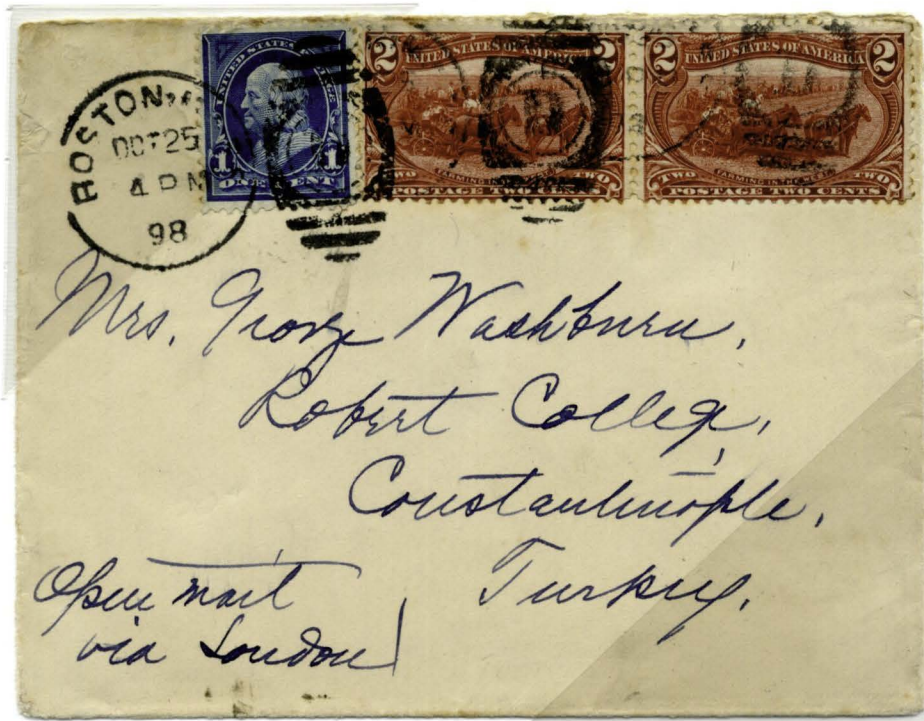 BOSTON,
OCT 25
4 PM
98
UNITED STATES
1 1
ONE CENT
2 UNITED STATES OF AMERICA 2
FARMING IN THE WEST
TWO TWO
POSTAGE TWO CENTS
2 UNITED STATES OF AMERICA 2
FARMING IN THE WEST
TWO TWO
POSTAGE TWO CENTS
Mrs. George Washburn,
Robert College,
Constantinople,
Turkey.
Open mail
via London